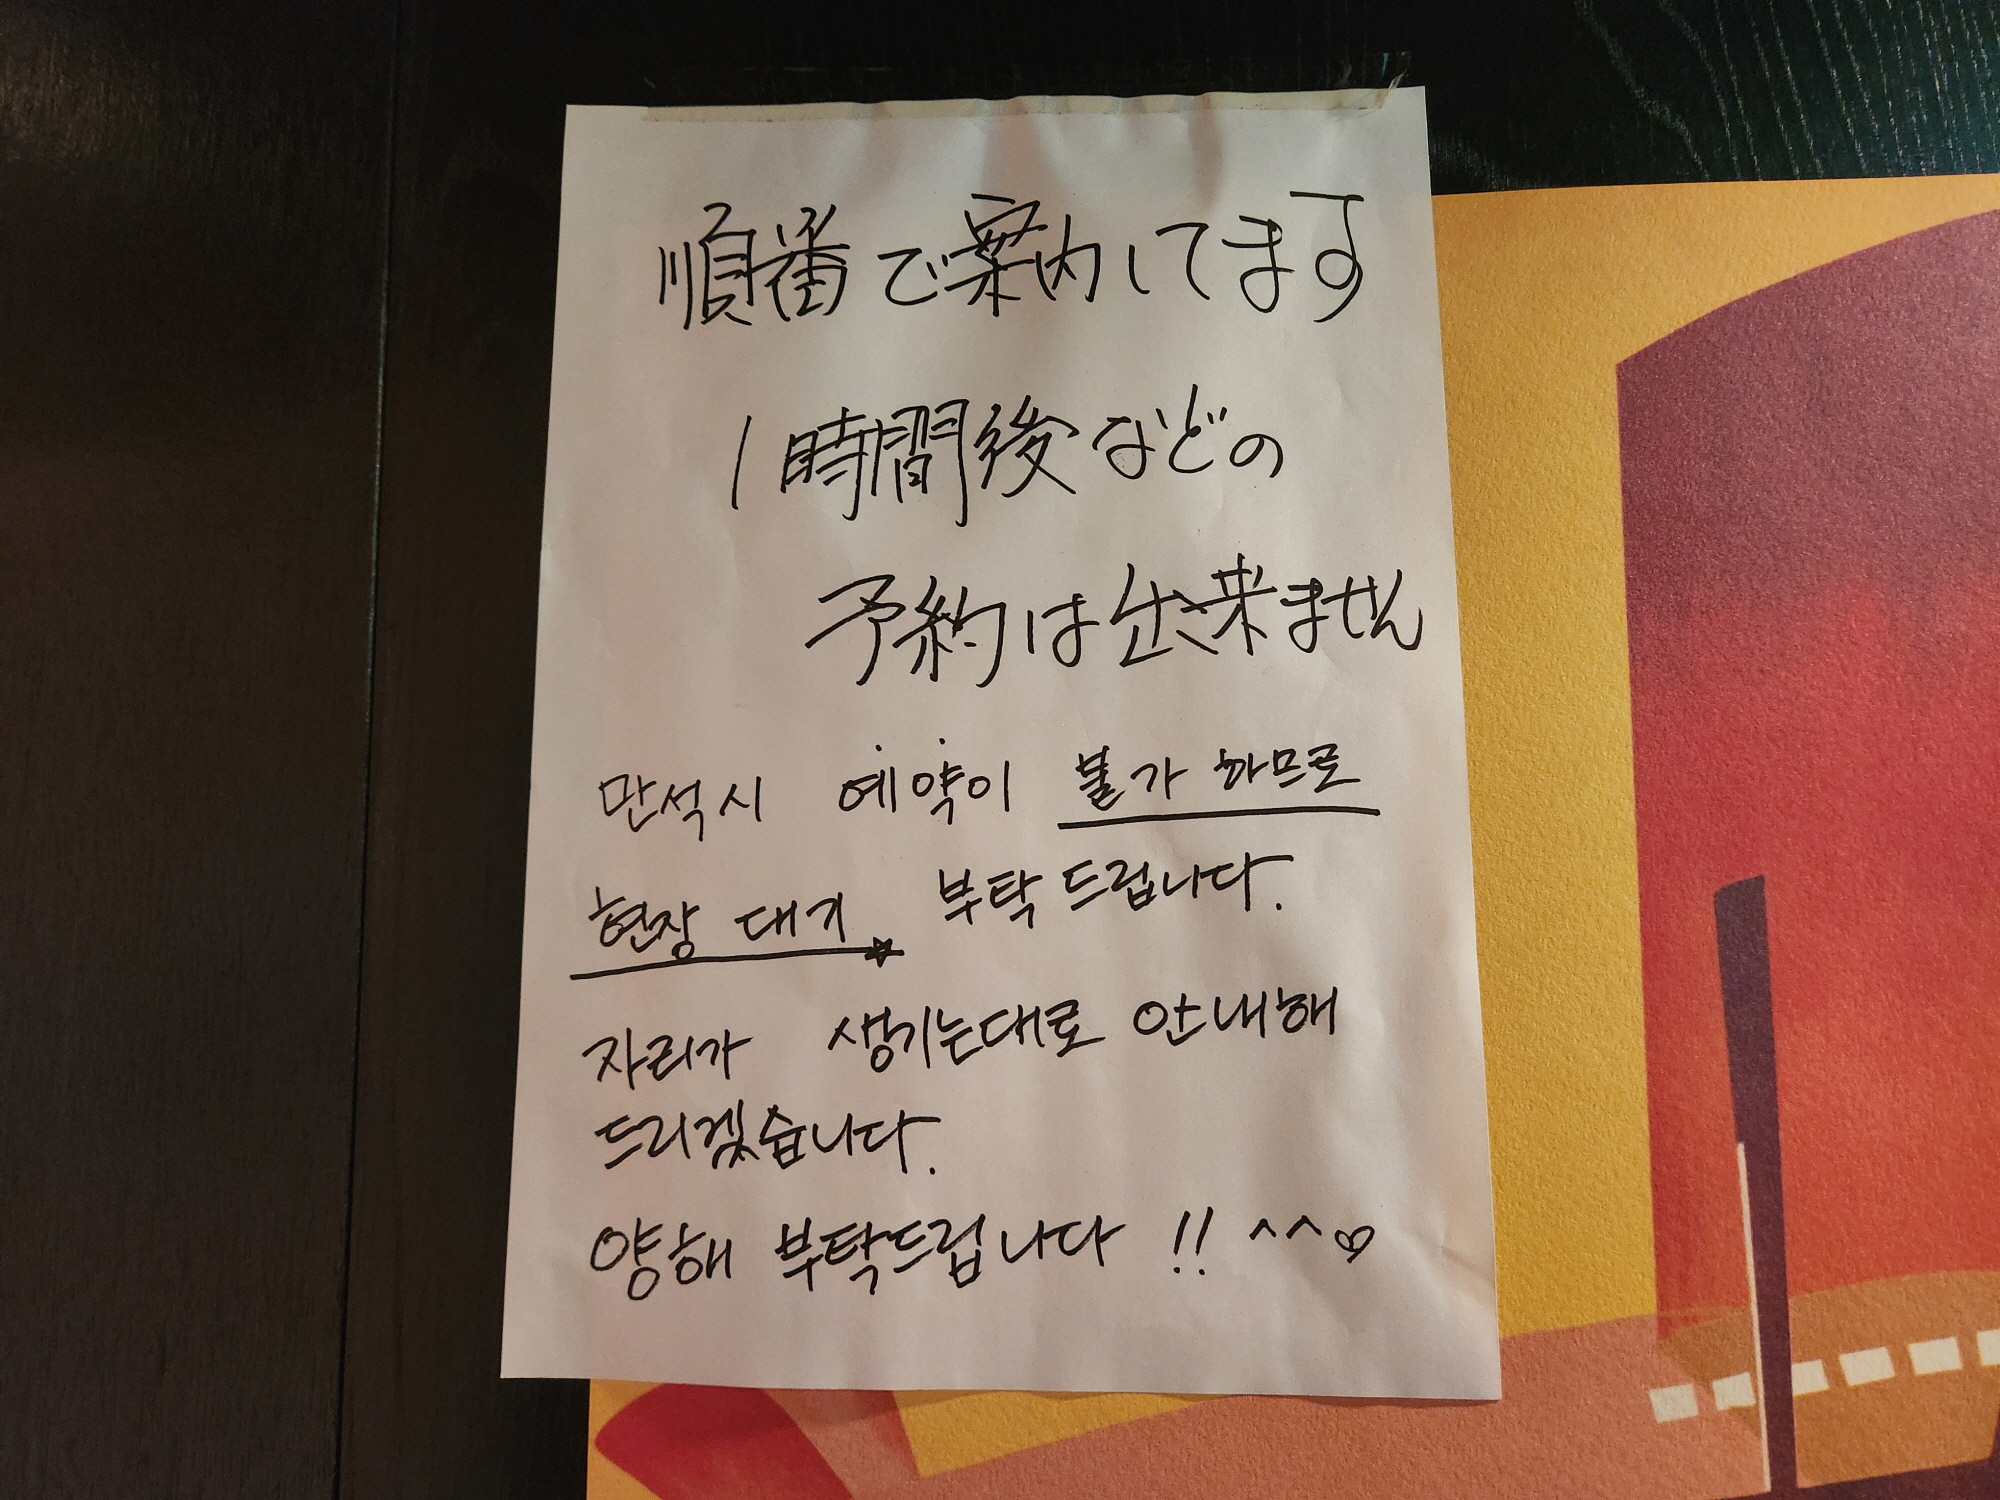 順番で案内してます
1時間後などの
予約は出来ません
만석시 예약이 불가하므로
현장 대기 부탁드립니다.
자리가 생기는대로 안내해
드리겠습니다.
양해 부탁드립니다 !! ^^♡